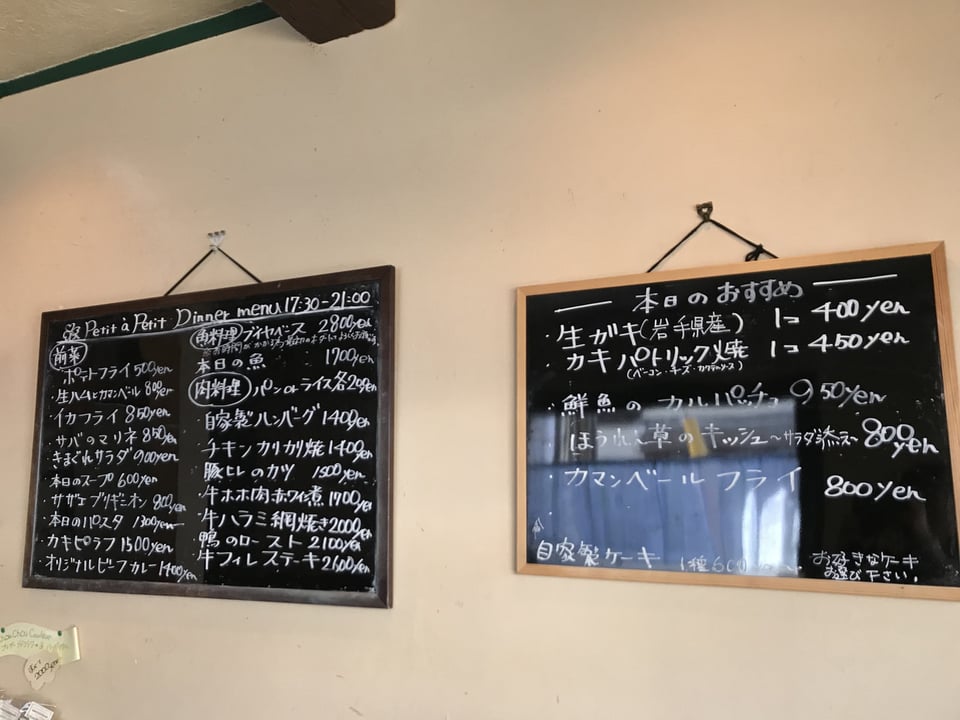 Petit à Petit Dinner menu 17:30-21:00
前菜
・ポテトフライ 500yen
・生ハムとカマンベール 800yen
・イカフライ 850yen
・サバのマリネ 850yen
・きまぐれサラダ 900yen
・本日のスープ 600yen
・サザエブルギニオン 800yen
・本日のパスタ 1300yen
・カキピラフ 1500yen
・オリジナルビーフカレー 1400yen
魚料理 ブイヤベース 2800yen
本日の魚 1700yen
肉料理 パン orライス 各200yen
自家製ハンバーグ 1400yen
チキンカリカリ焼 1400yen
豚ヒレのカツ 1500yen
牛ホホ肉赤ワイン煮 1900yen
牛ハラミ網焼き 2000yen
鴨のロースト 2100yen
牛フィレステーキ 2600yen
本日のおすすめ
・生ガキ(岩手県産) 1コ 400yen
・カキパトリック焼 1コ 450yen
(ベーコン・チーズ・カクテルソース)
・鮮魚のカルパッチョ 950yen
・ほうれん草のキッシュ〜サラダ添え〜 800yen
・カマンベールフライ 800yen
自家製ケーキ 1種 600yen お好きなケーキ
お選び下さい。